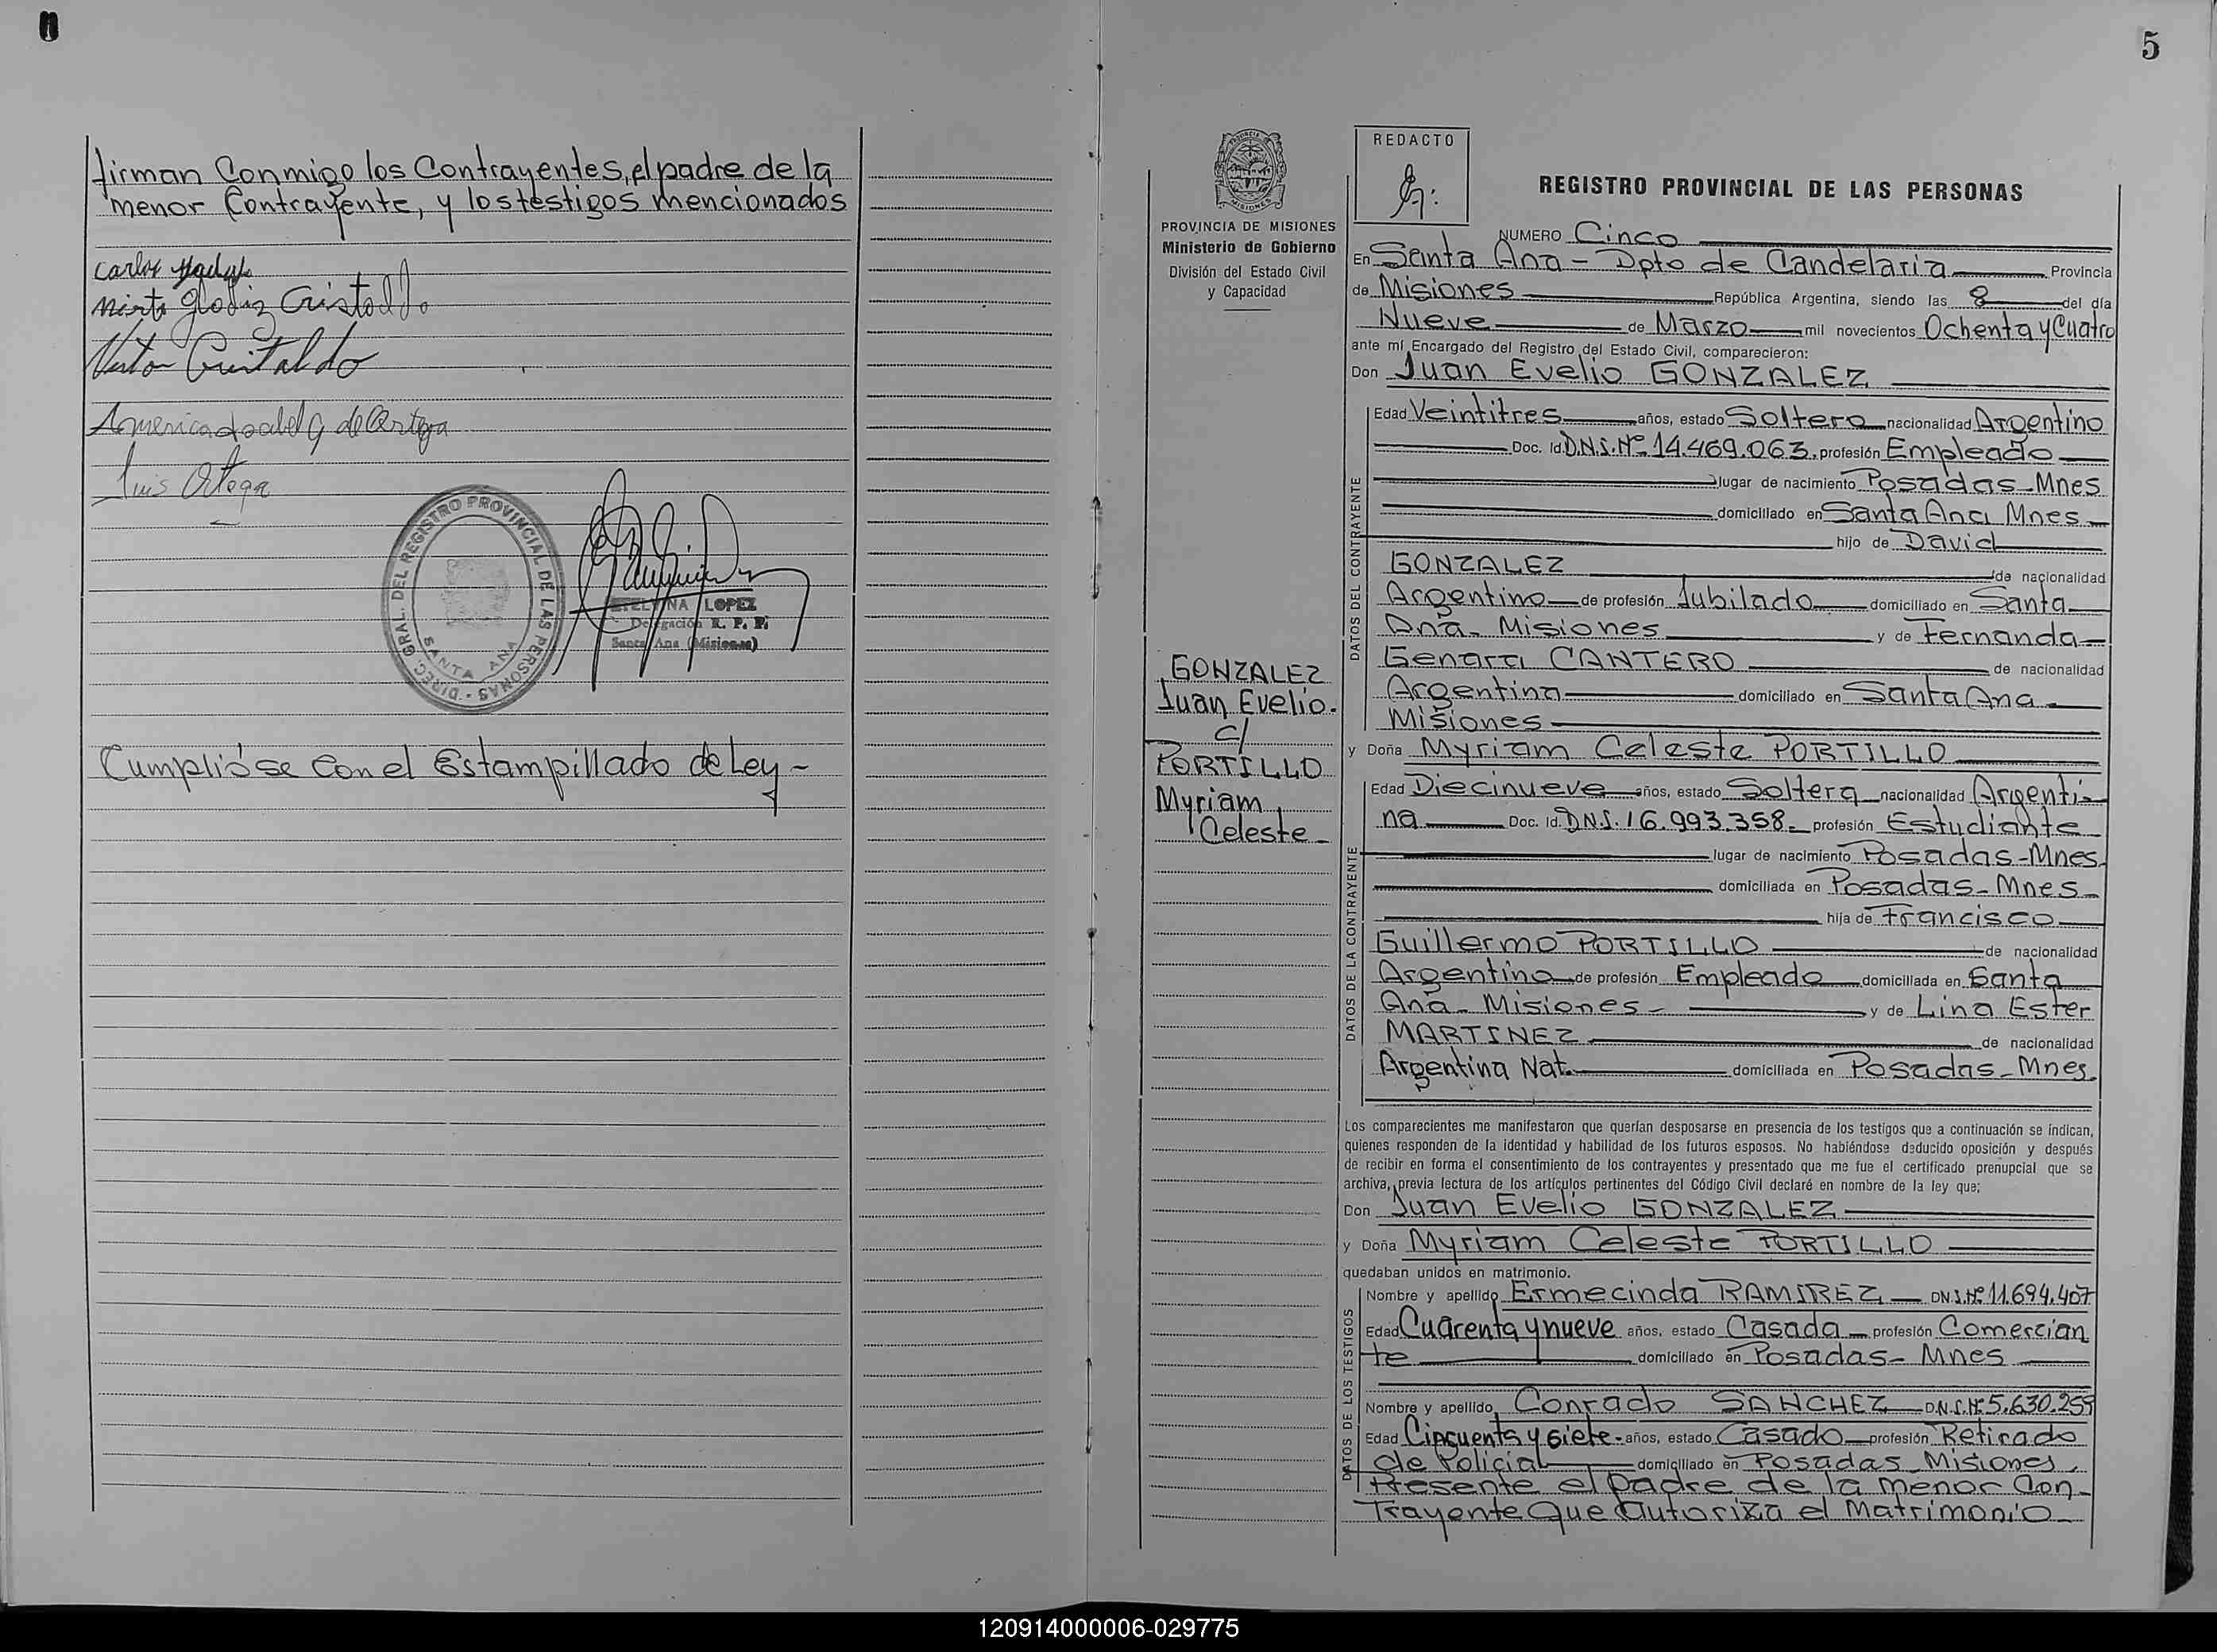 firman Conmigo los Contrayentes, el padre de la
menor Contrayente, y los testigos mencionados
Carlos
Mirta Gladiz Cristaldo
Cristaldo
America Isabel G de Ortega
Luis Ortega
DIREC. GRAL. DEL REGISTRO PROVINCIAL DE LAS PERSONAS -
SANTA ANA
ETELVINA LOPEZ
Delegación R. P. P.
Santa Ana (Misiones)
Cumplióse Con el Estampillado de Ley-
5
PROVINCIA DE MISIONES
Ministerio de Gobierno
División del Estado Civil
y Capacidad
GONZALEZ
Juan Evelio.
c/
PORTILLO
Myriam
Celeste-
REDACTO
REGISTRO PROVINCIAL DE LAS PERSONAS
NUMERO Cinco
En Santa Ana - Dpto de Candelaria Provincia
de Misiones República Argentina, siendo las 8 del día
Nueve de Marzo mil novecientos Ochenta y Cuatro
ante mí Encargado del Registro del Estado Civil, comparecieron:
Don Juan Evelio GONZALEZ
DATOS DEL CONTRAYENTE
Edad Veintitres años, estado Soltero nacionalidad Argentino
Doc. Id. D.N.I. Nº 14.469.063. profesión Empleado
lugar de nacimiento Posadas-Mnes
domiciliado en Santa Ana Mnes
hijo de David
GONZALEZ de nacionalidad
Argentino de profesión Jubilado domiciliado en Santa
Ana. Misiones y de Fernanda
Genara CANTERO de nacionalidad
Argentina domiciliado en Santa Ana
Misiones
y Doña Myriam Celeste PORTILLO
DATOS DE LA CONTRAYENTE
Edad Diecinueve años, estado Soltera nacionalidad Argenti-
na Doc. Id. DNI. 16.993.358- profesión Estudiante
lugar de nacimiento Posadas-Mnes.
domiciliada en Posadas-Mnes-
hija de Francisco
Guillermo PORTILLO de nacionalidad
Argentino de profesión Empleado domiciliada en Santa
Ana- Misiones- y de Lina Ester
MARTINEZ de nacionalidad
Argentina Nat. domiciliada en Posadas-Mnes.
Los comparecientes me manifestaron que querían desposarse en presencia de los testigos que a continuación se indican,
quienes responden de la identidad y habilidad de los futuros esposos. No habiéndose deducido oposición y después
de recibir en forma el consentimiento de los contrayentes y presentado que me fue el certificado prenupcial que se
archiva, previa lectura de los artículos pertinentes del Código Civil declaré en nombre de la ley que;
Don Juan Evelio GONZALEZ
y Doña Myriam Celeste PORTILLO
quedaban unidos en matrimonio.
DATOS DE LOS TESTIGOS
Nombre y apellido Ermecinda RAMIREZ DNI.Nº 11.694.407
Edad Cuarenta y nueve años, estado Casada profesión Comercian
te domiciliado en Posadas- Mnes
Nombre y apellido Conrado SANCHEZ D.N.I.Nº 5.630.259
Edad Cincuenta y siete- años, estado Casado profesión Retirado
de Policial domiciliado en Posadas Misiones.
Presente el padre de la menor Con-
trayente que autoriza el Matrimonio
120914000006-029775